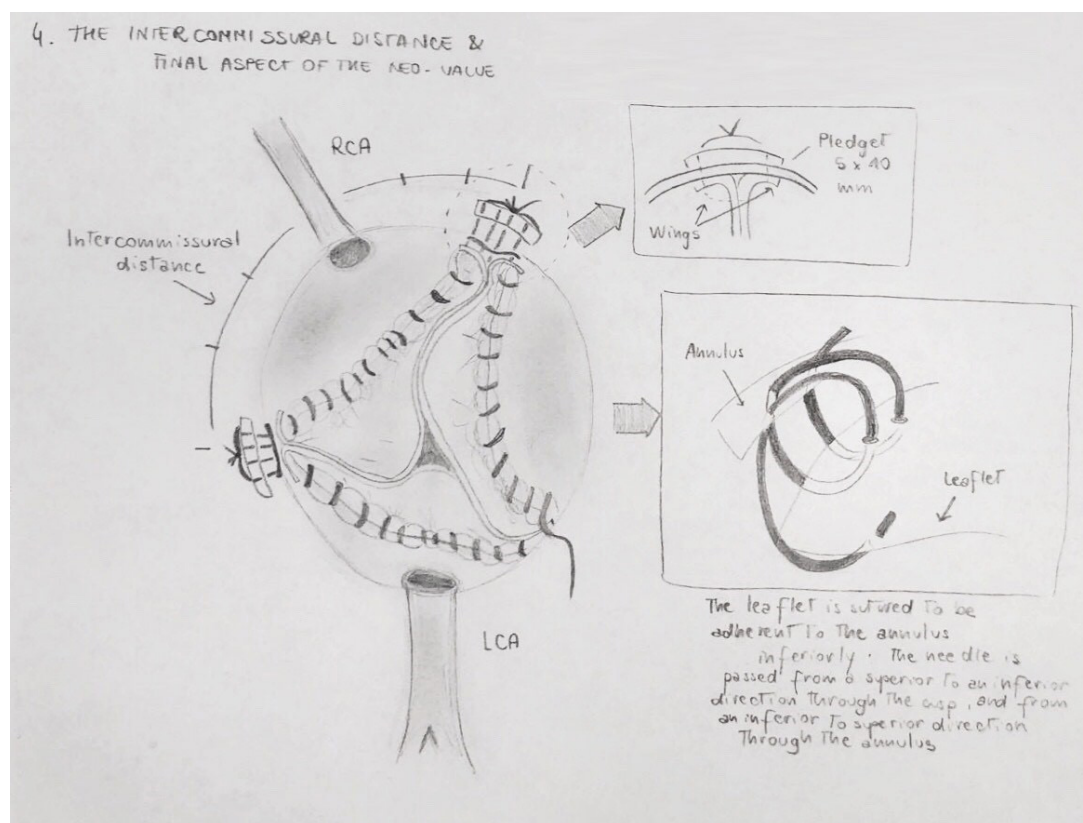 4. THE INTERCOMMISSURAL DISTANCE &
FINAL ASPECT OF THE NEO-VALVE
RCA
Intercommissural
distance
Pledget
5 x 40
mm
Wings
Annulus
Leaflet
LCA
The leaflet is sutured to be
adherent to the annulus
inferiorly. The needle is
passed from a superior to an inferior
direction through the cusp, and from
an inferior to superior direction
through the annulus